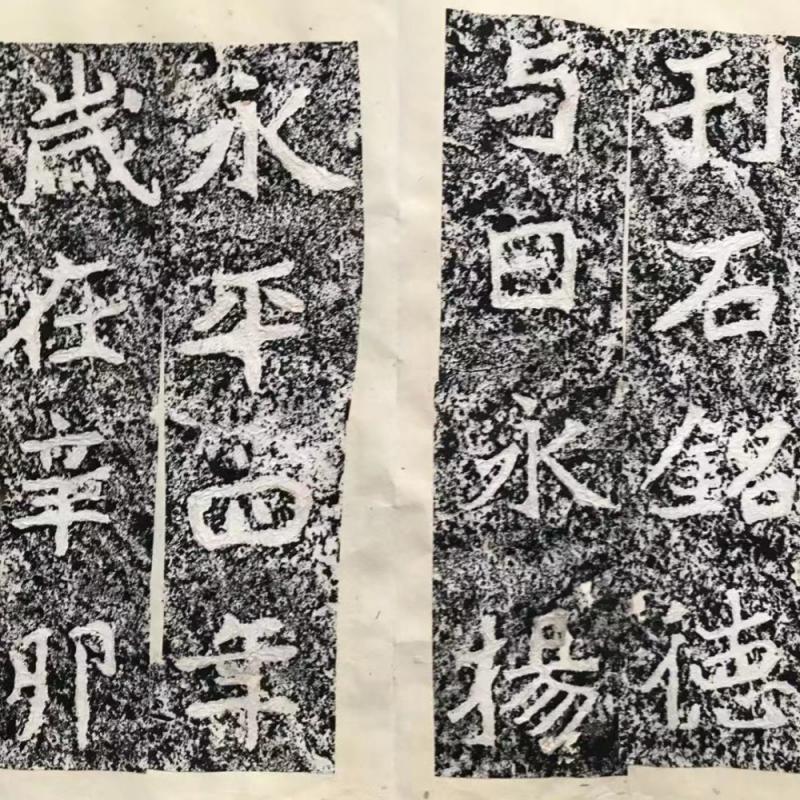 刊石銘德
与日永揚
永平四年
歲在辛卯